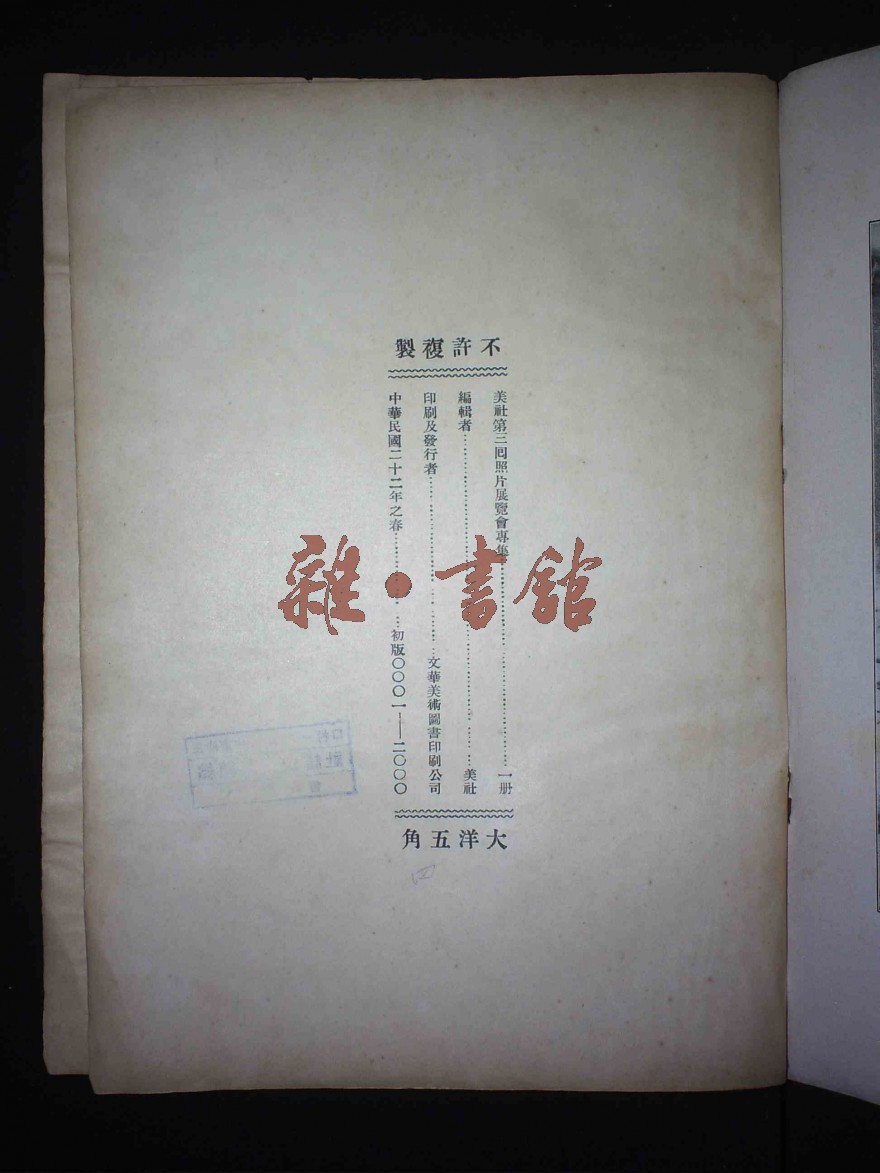 不許複製
美社第三囘照片展覽會專集……一册
編輯者……美社
印刷及發行者……文華美術圖書印刷公司
中華民國二十二年之春……初版〇〇〇一——二〇〇〇
大洋五角
雜·書館